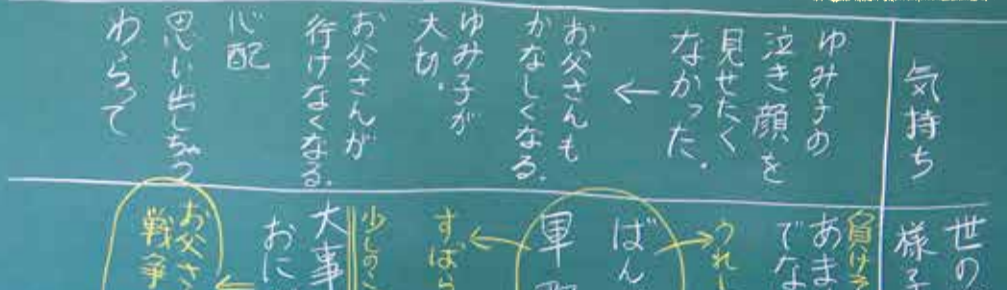 気持ち
ゆみ子の
泣き顔を
見せたく
なかった。
←
お父さんも
かなしくなる。
ゆみ子が
大切。
お父さんが
行けなくなる。
心配
思い出しちゃう
わらって
世の
様子
負けそ
あま
でな
うれし
ばん
軍
すばら
少しのこ
大事
おに
お父さ
戦争